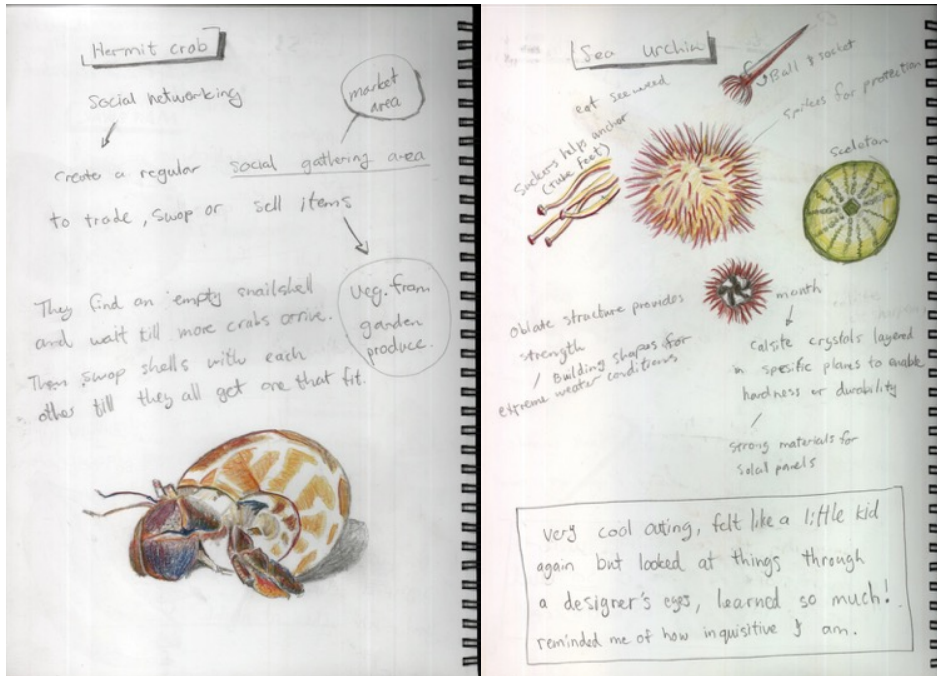 Hermit crab
Social networking
market
area
Create a regular social gathering area
to trade, swop or sell items
They find an empty snailshell
and wait till more crabs arrive.
Then swop shells with each
other till they all get one that fit.
Veg. from
garden
produce.
Sea urchin
Ball & socket
eat seeweed
Spikes for protection
Suckers helps anchor
(tube feet)
Sceleton
mouth
Oblate structure provides
strength
/ Building shapes for
extreme weater conditions
Calsite crystals layered
in spesific planes to enable
hardness or durability
strong materials for
solal panels
Very cool outing, felt like a little kid
again but looked at things through
a designer's eyes, learned so much!
reminded me of how inquisitive I am.